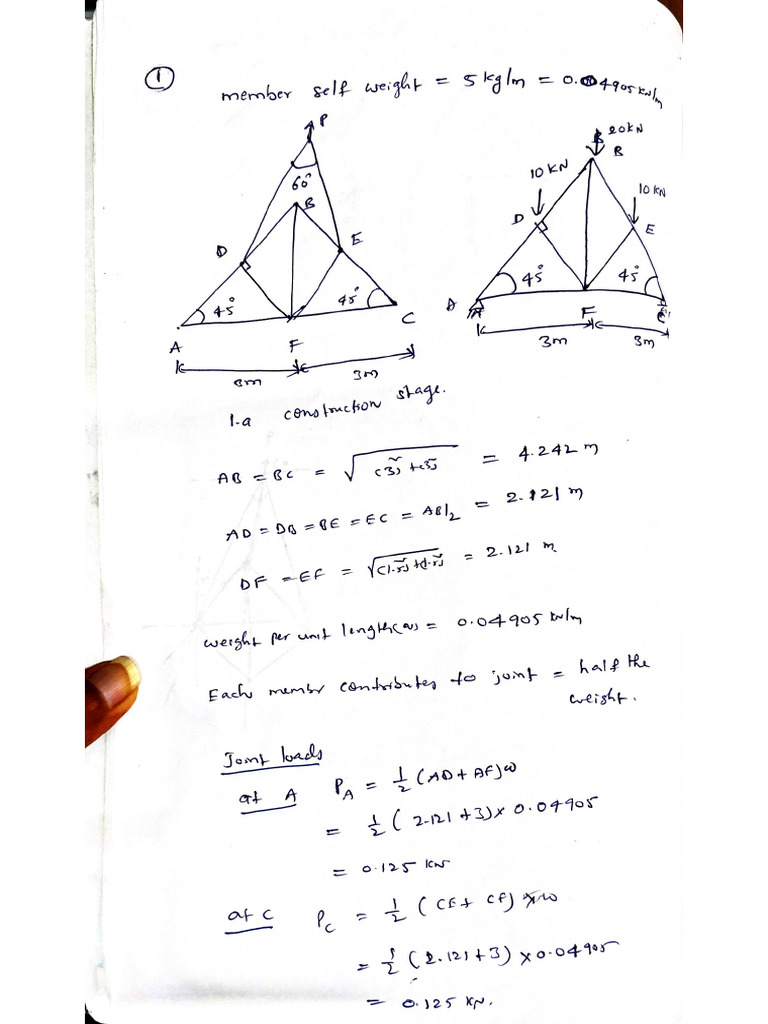 ①
member self weight = 5 kg/m = 0.04905 kN/m
P
60°
B
D
E
45°
45°
A
F
C
3m
3m
20kN
B
10 KN
10 KN
D
E
45°
45°
A
F
C
3m
3m
1.a construction stage.
AB = BC = √(3)²+(3)² = 4.242 m
AD = DB = BE = EC = AB/2 = 2.121 m
DF = EF = √(1.5)²+(1.5)² = 2.121 m
weight per unit length(w) = 0.04905 kN/m
Each member contributes to joint = half the
weight.
Joint loads
at A P_A = 1/2 (AD + AF) ω
= 1/2 ( 2.121 + 3) × 0.04905
= 0.125 KN
at C P_C = 1/2 ( CE + CF) × ω
= 1/2 (2.121 + 3) × 0.04905
= 0.125 KN.